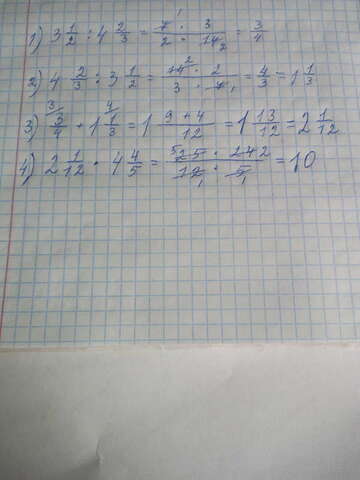 1) 3 1/2 : 4 2/3 = 7 · 3 / 2 · 14 2 = 3/4
2) 4 2/3 : 3 1/2 = 14 2 · 2 / 3 · 7 1 = 4/3 = 1 1/3
3) 3/ 3/4 + 1 4/ 1/3 = 1 9 + 4 / 12 = 1 13/12 = 2 1/12
4) 2 1/12 · 4 4/5 = 5 25 · 24 2 / 12 1 · 5 1 = 10